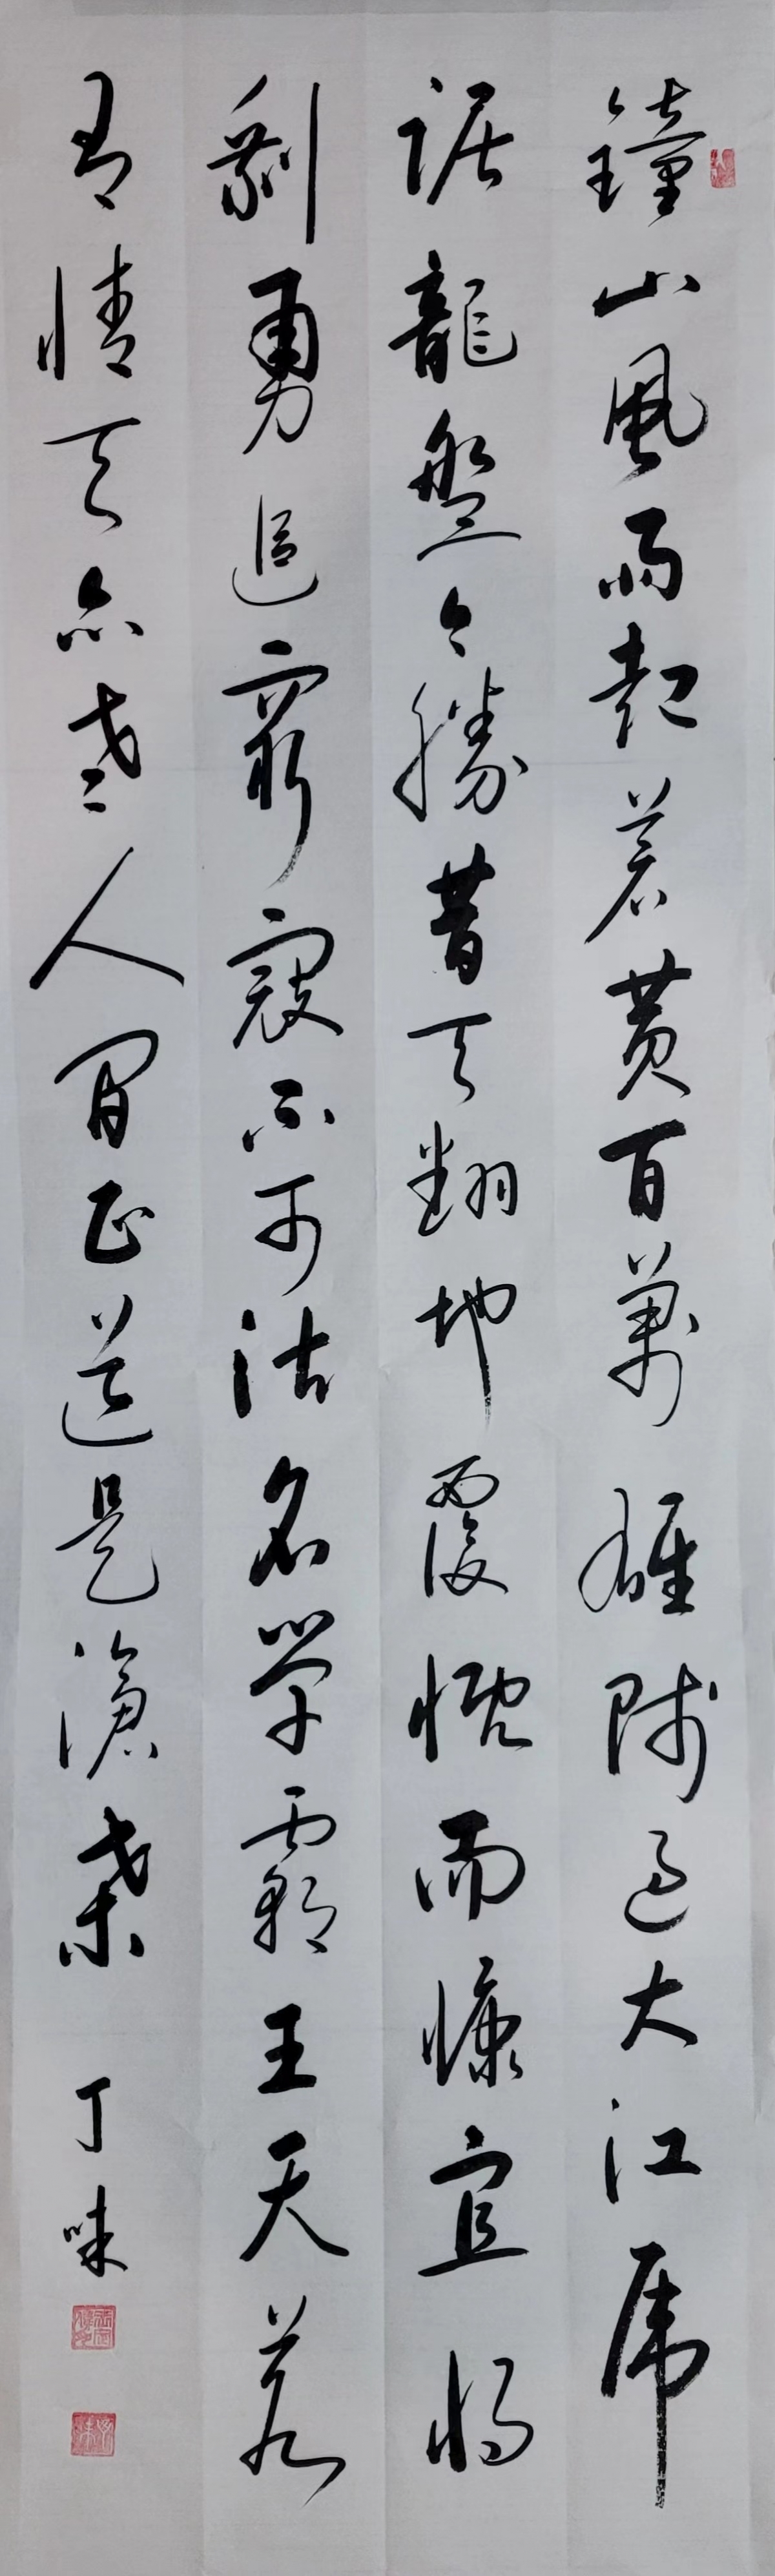 鐘山風雨起蒼黃百萬雄師過大江虎
踞龍盤今勝昔天翻地覆慨而慷宜將
剩勇追窮寇不可沽名學霸王天若
有情天亦老人間正道是滄桑 丁味